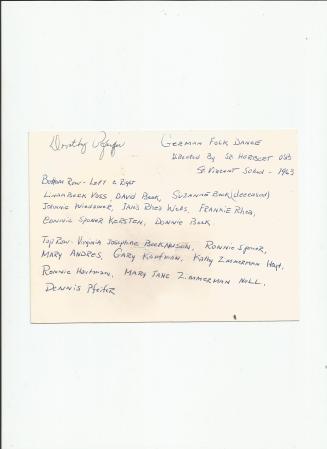 Dorothy Pfeifer
German Folk Dance
Directed By Sr. Herbert OSB
St. Vincent School - 1963
Bottom Row - Left to Right
Linda Beek Voss, David Beek, Suzanne Beek (deceased)
Johnnie Windsner, Janis Rhea Wells, Frankie Rhea,
Connie Spooner Kersten, Donnie Beek
Top Row - Virginia Josephine Beek Hanson, Ronnie Spooner,
Mary Andres, Gary Kaufman, Kathy Zimmerman Hoyt,
Ronnie Hartman, Mary Jane Zimmerman Noll,
Dennis Pfeifer